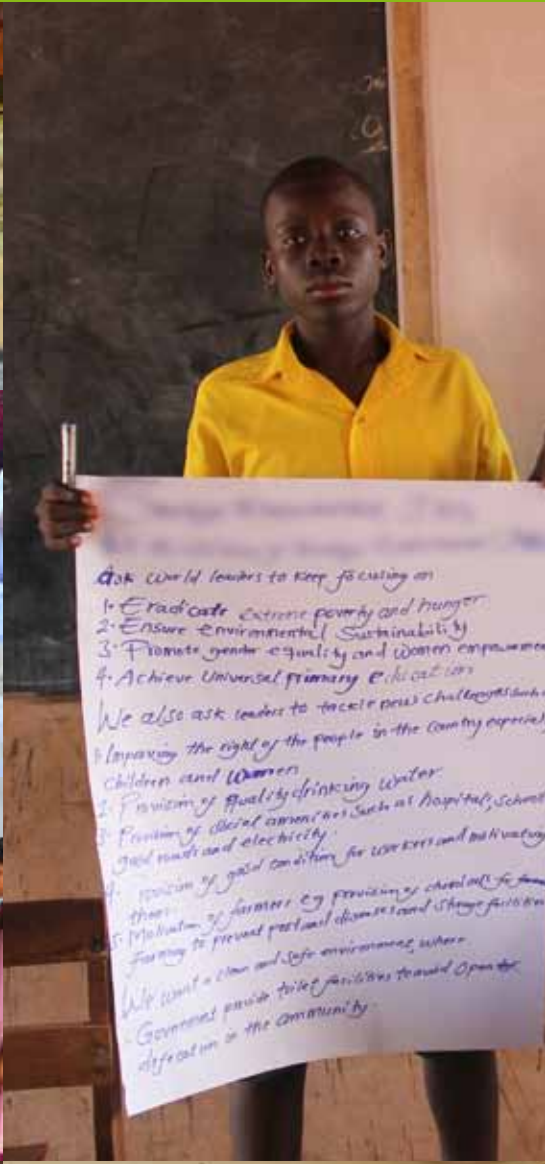 ask world leaders to keep focusing on
1. Eradicate extreme poverty and hunger
2. Ensure environmental Sustainability
3. Promote gender equality and women
4. Achieve Universal primary education
We also ask leaders to tackle news challenges such
1. Improving the right of the people in the country
children and women
2. Provision of quality drinking water
3. Provision of social amenities such as hospital, school
good roads and electricity.
4. Provision of good condition for workers and motivating
them.
5. Motivation of farmers eg provision of
farming to prevent pest and diseases and storage facilities
We want a clean and safe environment, where
Government provide toilet facilities to avoid open
defecation in the community.